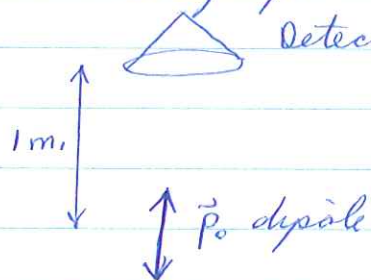 Detec
1 m.
p⃗₀ dipôle